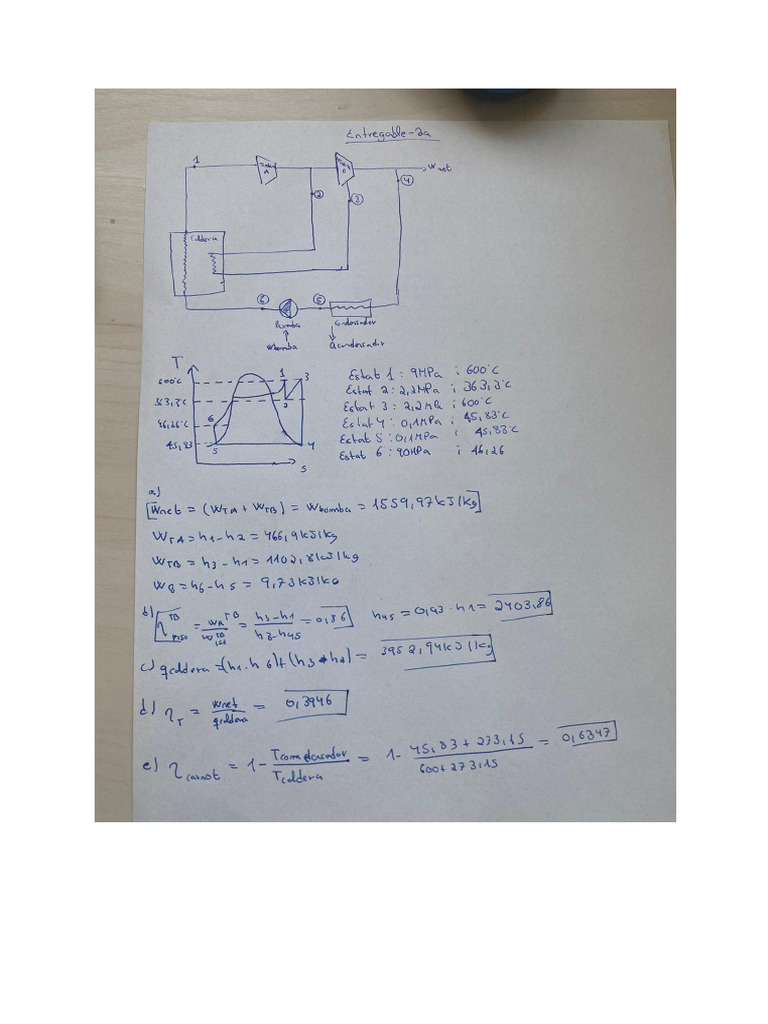 Entregable-2a
1
Turbina A
Turbina B
Wnet
4
2
3
Caldera
6
5
Bomba
Condensador
Wbomba
Qcondensador
T
600°C
363,3°C
46,26°C
45,83
1
3
2
6
5
4
s
Estat 1 : 9MPa i 600°C
Estat 2 : 2,2MPa i 363,3°C
Estat 3 : 2,2MPa i 600°C
Estat 4 : 0,1MPa i 45,83°C
Estat 5 : 0,1MPa i 45,83°C
Estat 6 : 90MPa i 46,26
a)
Wnet = (WTA + WTB) = Wbomba = 1559,97kJ/kg
WTA = h1 - h2 = 466,9kJ/kg
WTB = h3 - h1 = 1102,8kJ/kg
WB = h6 - h5 = 9,73kJ/kg
b) = = h3-h1 / h3-h4s = 0,86 h4s = 0,93 · h1 = 2403,86
c) qcaldera = (h1 - h6) + (h3 h2) = 3952,94kJ/kg
d) ηT = Wnet / qcaldera = 0,3946
e) ηcarnot = 1 - Tcondensador / Tcaldera = 1 - 45,83 + 273,15 / 600 + 273,15 = 0,6347